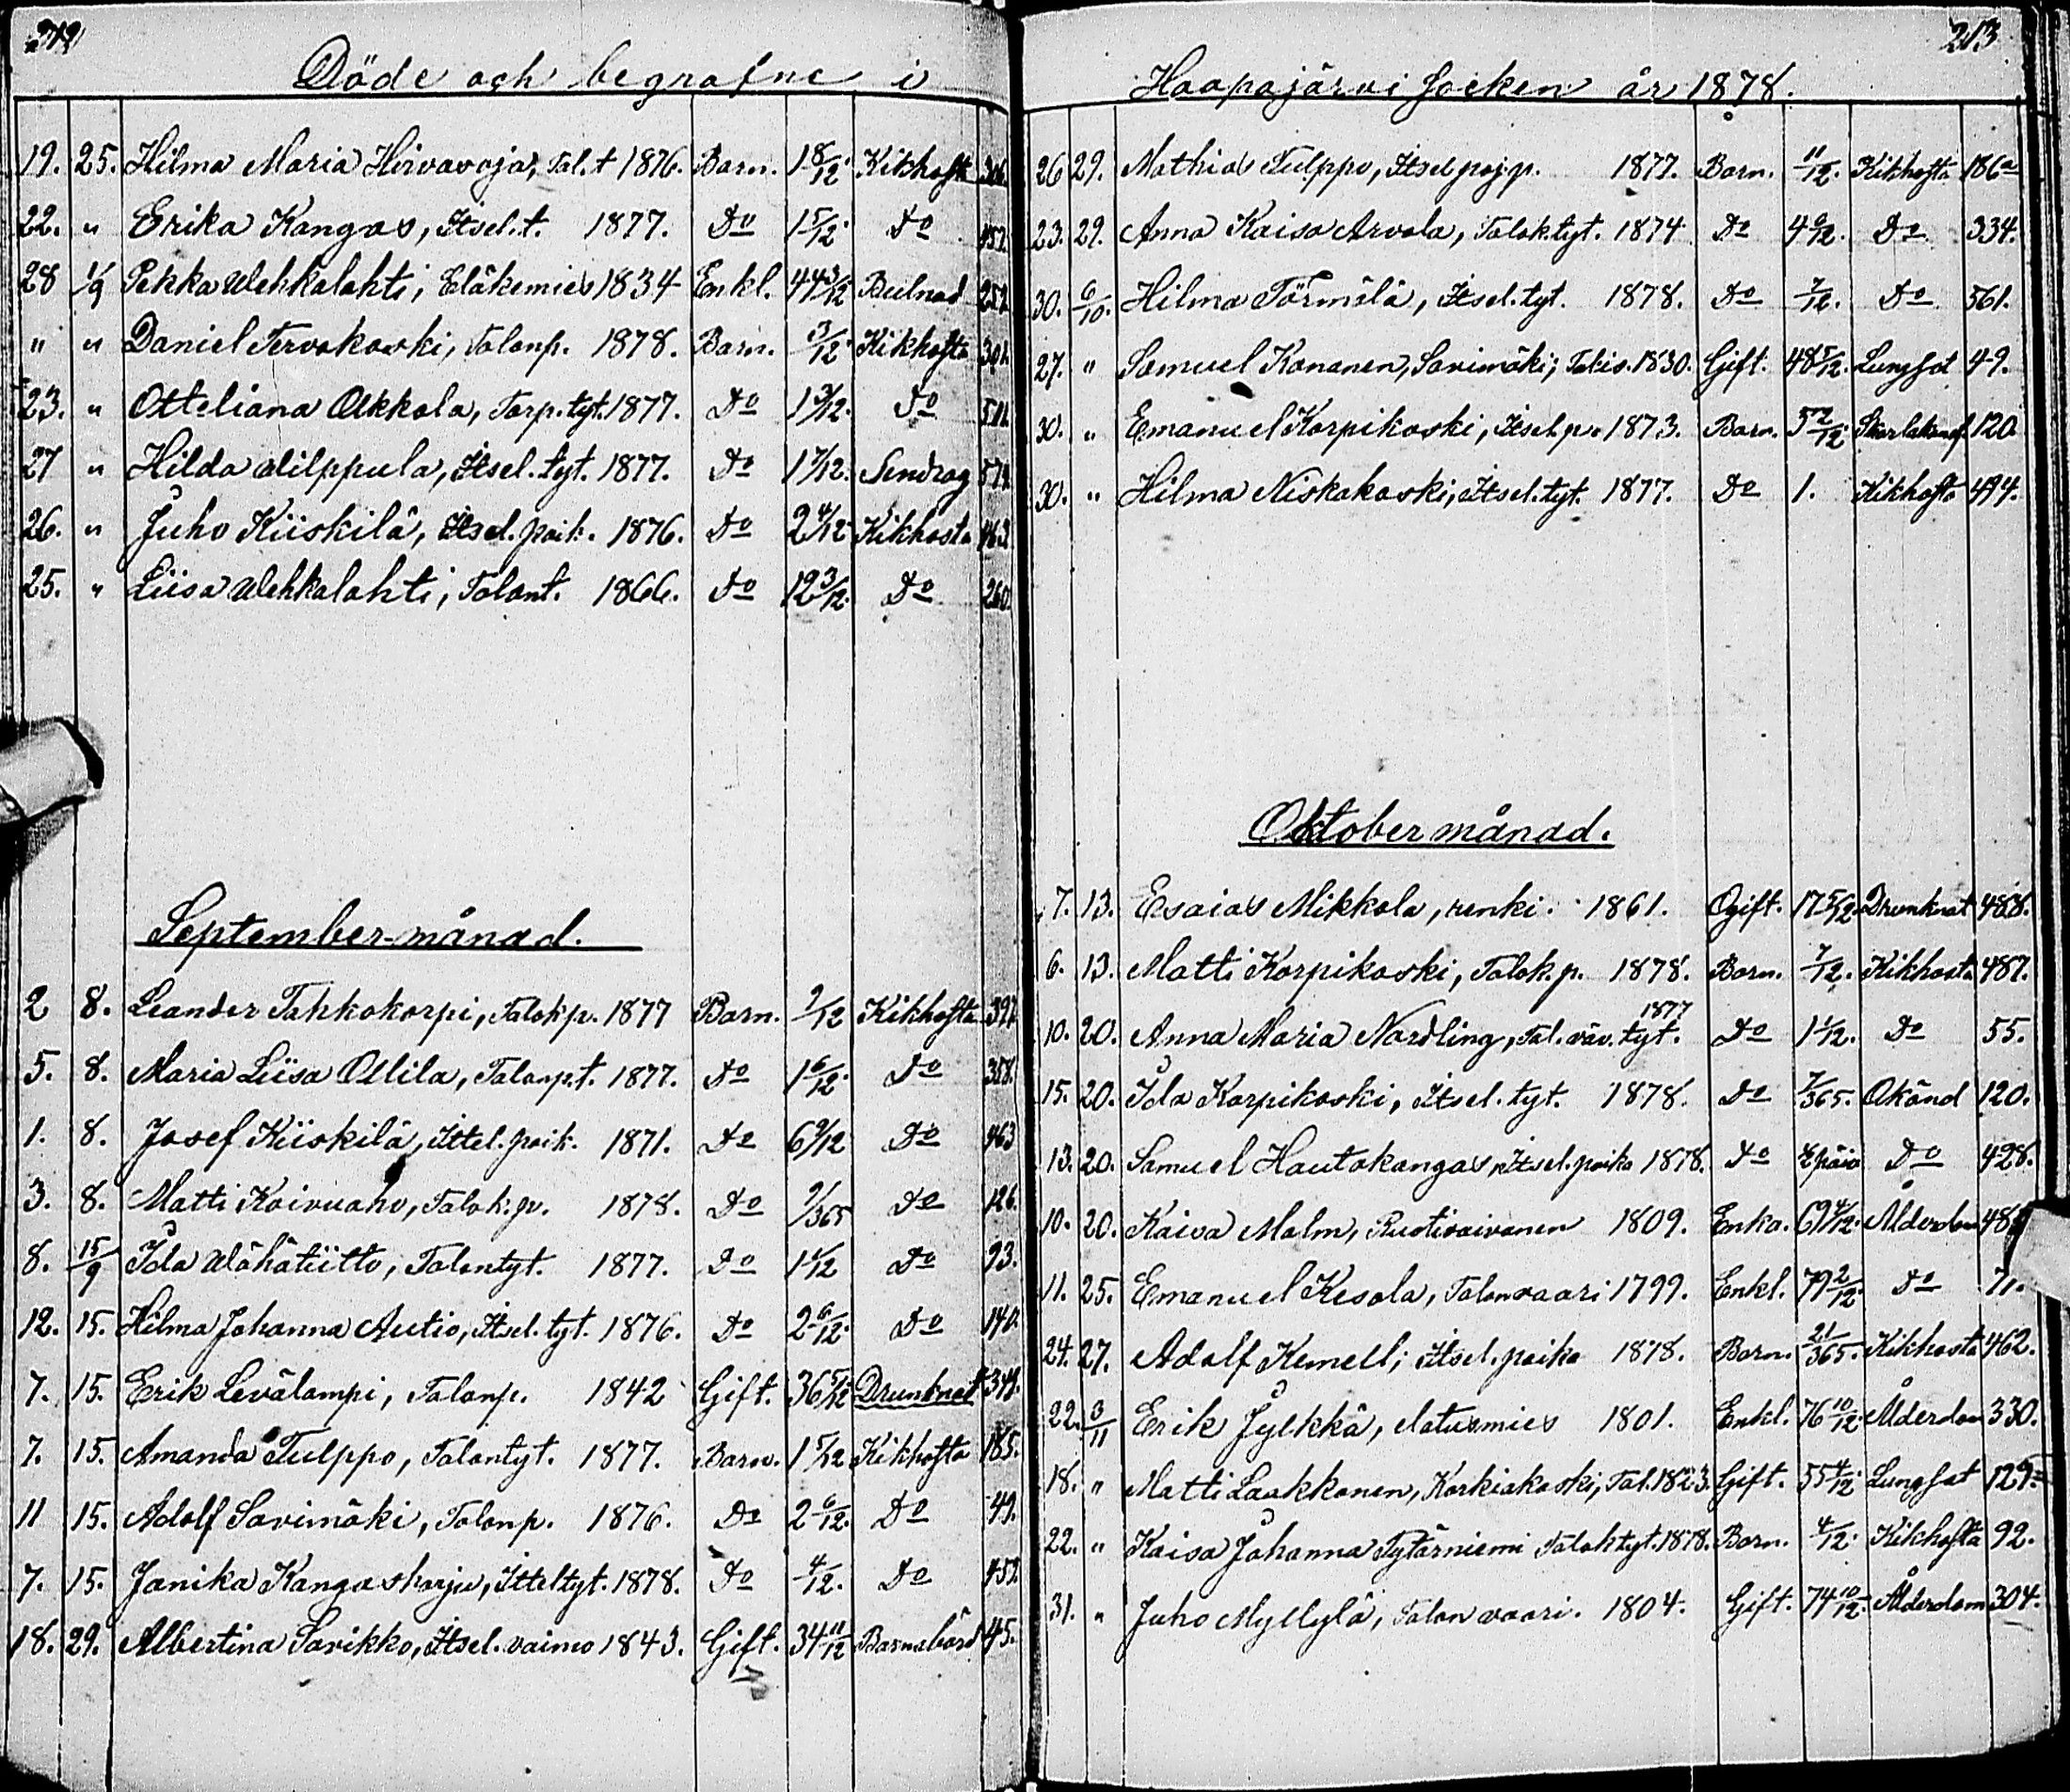 212
Döde och begrafne i
19. 25. Hilma Maria Hirvavoja, Tal.t 1876. Barn. 1 8/12. Kikhosta 306.
22. " Erika Kangas, Itsel.t. 1877. Do 1 5/12. Do 457.
28 1/9 Pekka Wehkalahti, Eläkemies 1834 Enkl. 44 3/12 Bulnad 252.
" " Daniel Tervakoski, Talonp. 1878. Barn. 3/12. Kikhosta 301.
23. " Otteliana Olkkola, Torp.tyt. 1877. Do 1 3/12. Do 511.
27 " Hilda Wilppula, Itsel.tyt. 1877. Do 1 7/12. Sendrag
26. " Juho Kiiskilä, Itsel.poik. 1876. Do 2 4/12 Kikhosta 463.
25. " Liisa Wehkalahti, Talont. 1866. Do 12 3/12. Do 260.
September månad.
2 8. Leander Tahkokorpi, Talokp. 1877 Barn. 9/12 Kikhosta 392
5. 8. Maria Liisa Ollila, Talonp.t. 1877. Do 1 6/12. Do 358.
1. 8. Josef Kiiskilä, Ittel.poik. 1871. Do 6 9/12 Do 463
3. 8. Matti Koivuaho, Talok.p. 1878. Do 9/365 Do 126.
8. 15/9 Ida Wähätiitto, Talontyt. 1877. Do 1 1/12 Do 93.
12. 15. Hilma Johanna Autio, Itsel.tyt. 1876. Do 2 6/12. Do 140.
7. 15. Erik Levälampi, Talonp. 1842 Gift. 36 5/12 Drunknat 348.
7. 15. Amanda Tulppo, Talontyt. 1877. Barn. 1 5/12 Kikhosta 185.
11 15. Adolf Savimäki, Talonp. 1876. Do 2 6/12. Do 49.
7. 15. Janika Kangasharju, Itteltyt. 1878. Do 4/12. Do 457.
18. 29. Albertina Savikko, Itsel.vaimo 1843. Gift. 34 11/12 Barnsbörd 45.
213
Haapajärvi Socken år 1878.
26 29. Mathias Tulppo, Itsel poj.p. 1877. Barn. 11/12. Kikhosta 186a
23. 29. Anna Kaisa Arvola, Talok.tyt. 1874 Do 4 9/12. Do 334.
30. 6/10. Hilma Törmälä, Itsel.tyt. 1878. Do 7/12. Do 561.
27. " Samuel Kananen, Savimäki, Talis. 1830. Gift. 48 5/12. Lungsot 49.
30. " Emanuel Korpikoski, Itsel.p. 1873. Barn. 5 2/12. Skarlakansf. 120
30. " Hilma Niskakoski, Itsel.tyt. 1877. Do 1. Kikhosta 494.
Oktober månad.
7. 13. Esaias Mikkola, renki. 1861. Ogift. 17 5/12. Drunknat 488.
6. 13. Matti Korpikoski, Talok.p. 1878. Barn. 7/12. Kikhosta 487.
10. 20. Anna Maria Nordling, Tal.väv. tyt. 1877 Do 1 1/12. Do 55.
15. 20. Ida Korpikoski, Itsel.tyt. 1878. Do 7/365. Okänd 120.
13. 20. Samuel Hautakangas, Itsel.poika 1878. Do päiv Do 428.
10. 20. Kaisa Malm, Ruotivaivanen 1809. Enka. 69 4/12. Ålderdom
11. 25. Emanuel Kesola, Talonvaari 1799. Enkl. 79 2/12. Do 71.
24. 27. Adolf Kemell, Itsel.poika 1878. Barn. 21/365. Kikhosta 462.
22. 3/11 Erik Jylkkä, elatusmies 1801. Enkl. 76 10/12. Ålderdom 330.
18. " Matti Laakkonen, Korkiakoski, Tal. 1823. Gift. 55 4/12. Lungsot 129.
22. " Kaisa Johanna Tytärniemi Talok.tyt. 1878. Barn. 4/12. Kikhosta 92.
31. " Juho Myllylä, Talon vaari. 1804. Gift. 74 10/12. Ålderdom 304.